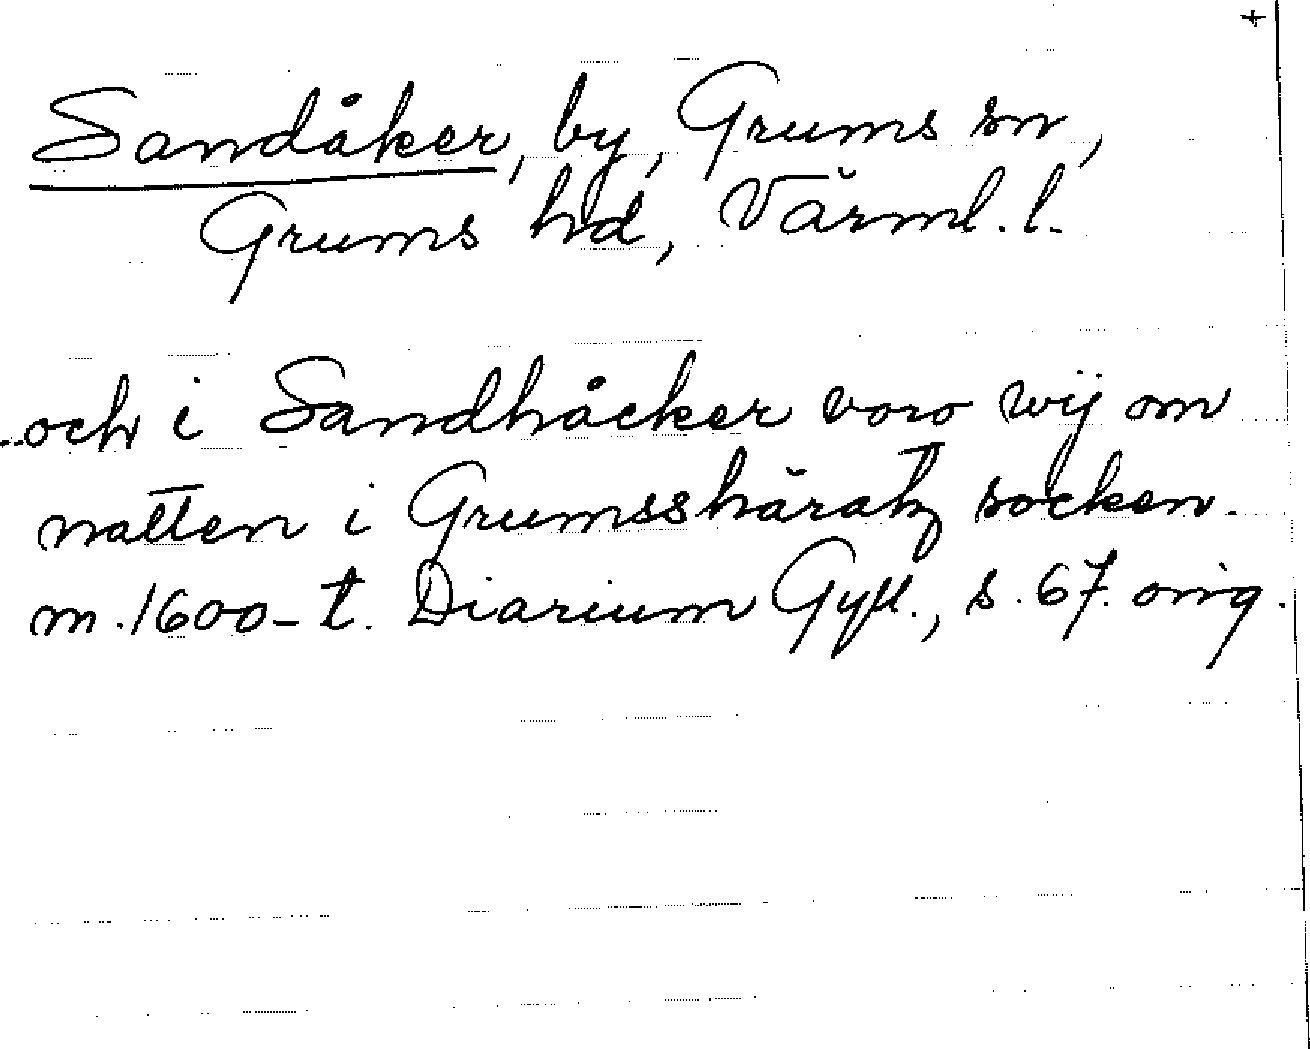 +
Sandåker, by, Grums sn,
Grums hd, Värml. l.
...och i Sandhåcker voro wij om
natten i Grumsshäratz socken.
m. 1600-t. Diarium Gyll., s. 67. orig.